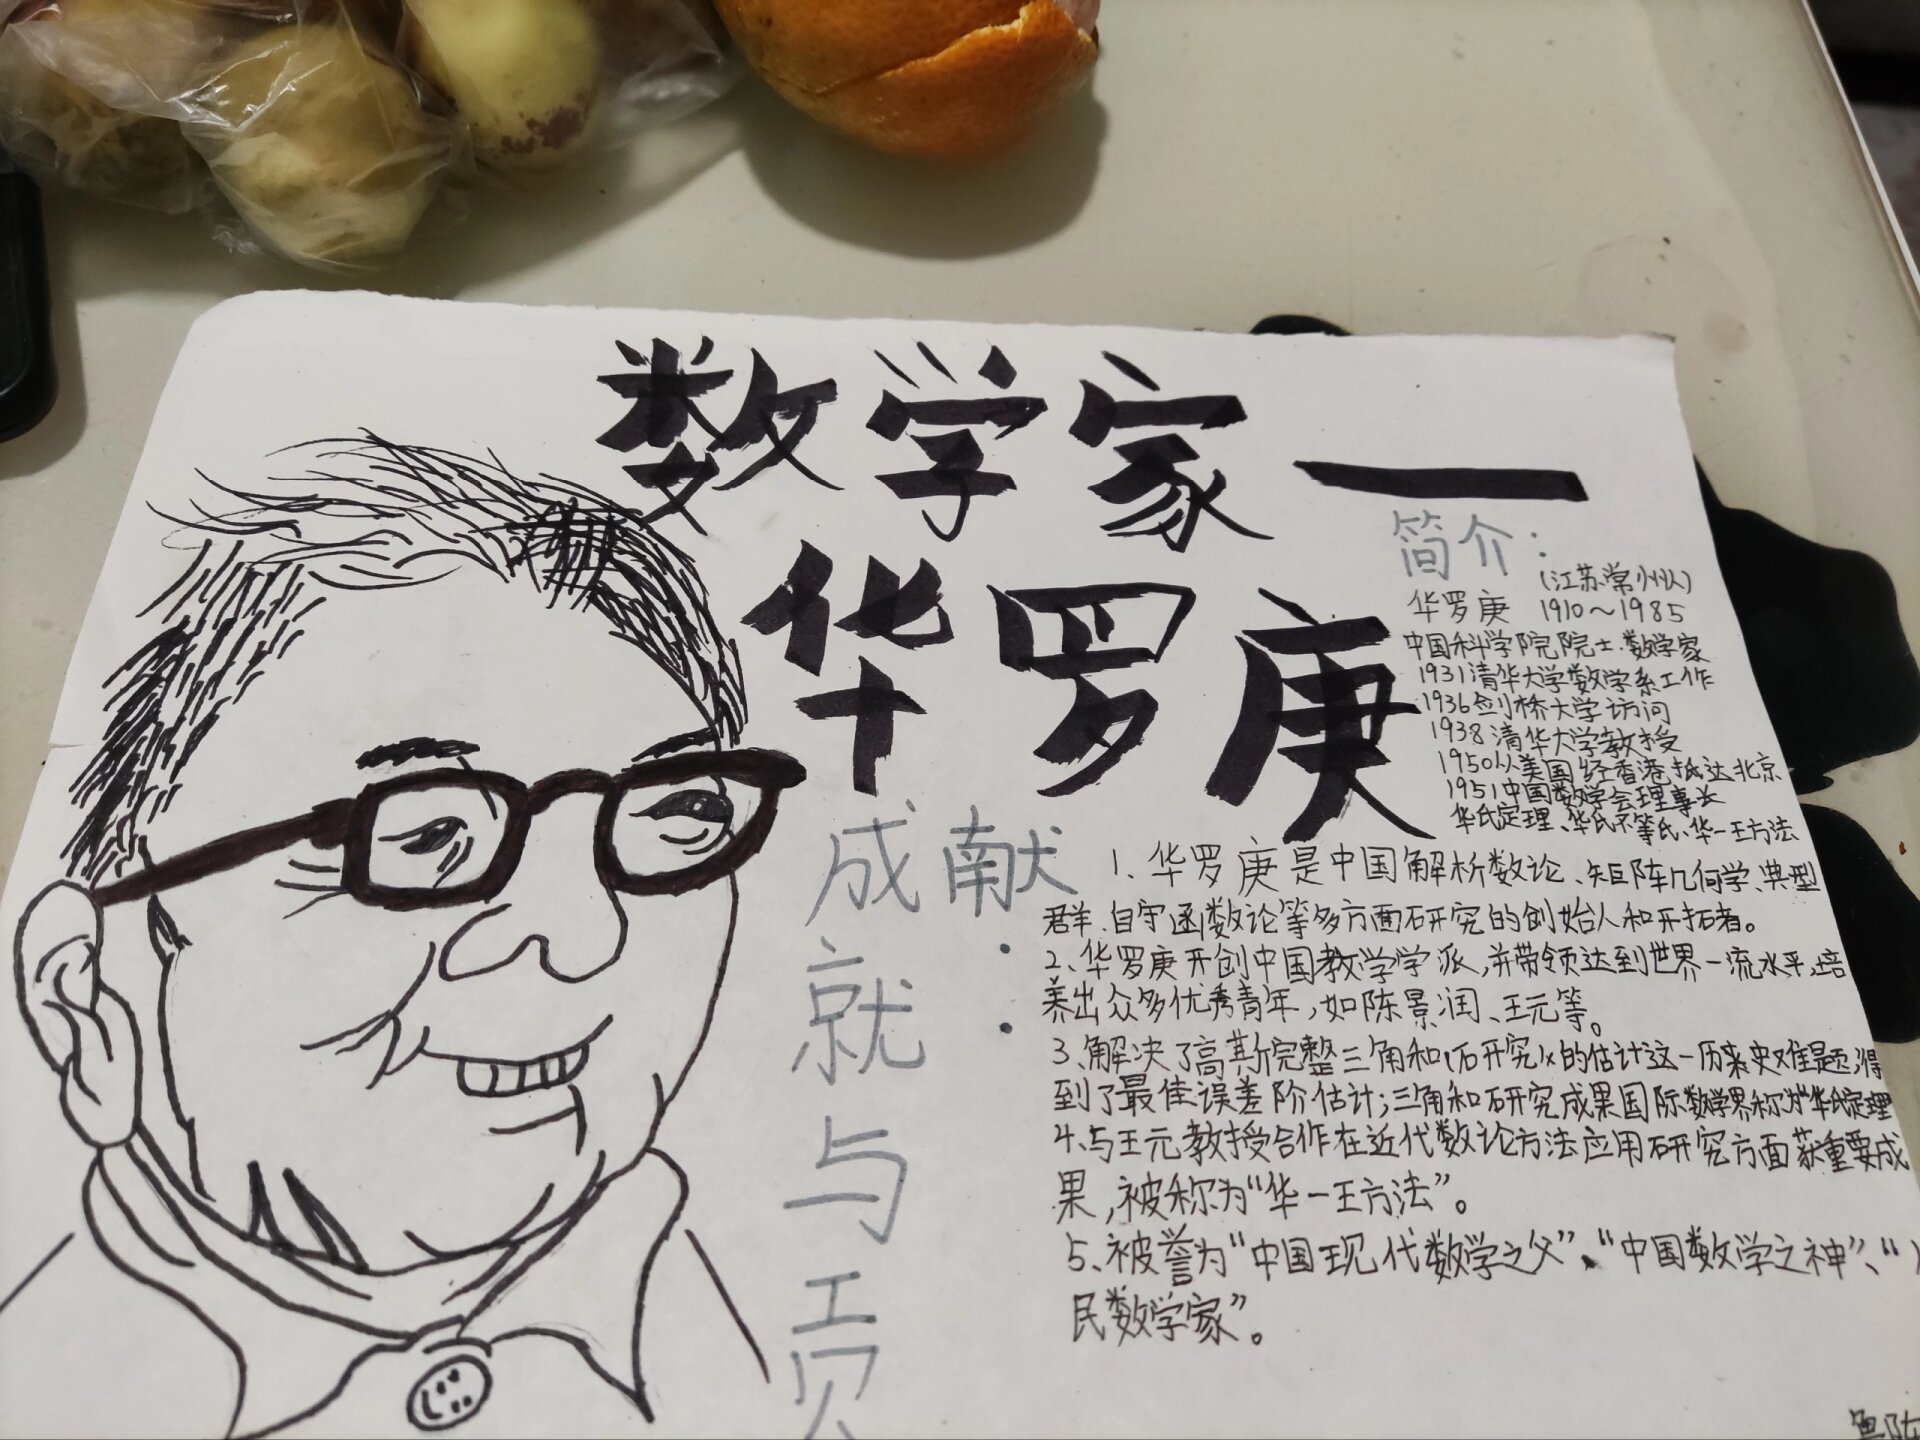 数学家一
华罗庚
简介:
(江苏常州)
华罗庚 1910～1985
中国科学院院士.数学家
1931清华大学数学系工作
1936剑桥大学访问
1938清华大学教授
1950从美国经香港抵达北京
1951中国数学会理事长
华氏定理、华氏不等氏、华一王方法
成就与贡
献:
1、华罗庚是中国解析数论、矩阵几何学、典型
群.自守函数论等多方面研究的创始人和开拓者。
2、华罗庚开创中国数学学派,并带领达到世界一流水平,培
养出众多优秀青年,如陈景润、王元等。
3、解决了高斯完整三角和(研究)的估计这一历来史难题,得
到了最佳误差阶估计;三角和研究成果国际数学界称为“华氏定理
4、与王元教授合作在近代数论方法应用研究方面获重要成
果,被称为“华一王方法”。
5、被誉为“中国现代数学之父”、“中国数学之神”、“
民数学家”。